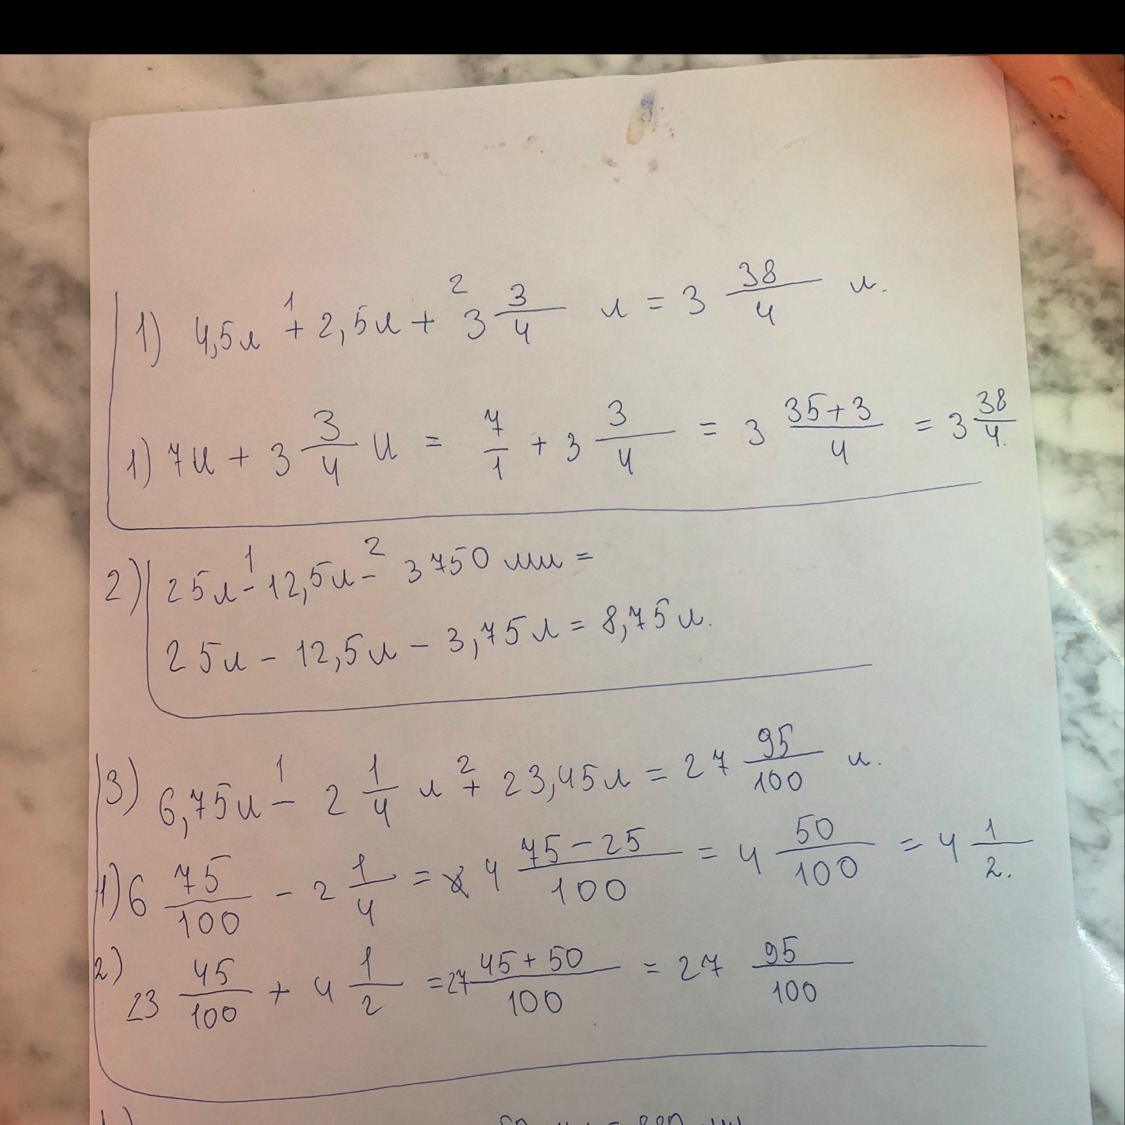 1) 4,5л + 2,5л + 3 3/4 л = 3 38/4 л.
1) 7л + 3 3/4 л = 7/1 + 3 3/4 = 3 35+3/4 = 3 38/4.
2) 25л - 12,5л - 3750 мл =
25л - 12,5л - 3,75л = 8,75л.
3) 6,75л - 2 1/4 л + 23,45л = 27 95/100 л.
1) 6 75/100 - 2 1/4 = 4 75-25/100 = 4 50/100 = 4 1/2.
2) 23 45/100 + 4 1/2 = 27 45+50/100 = 27 95/100